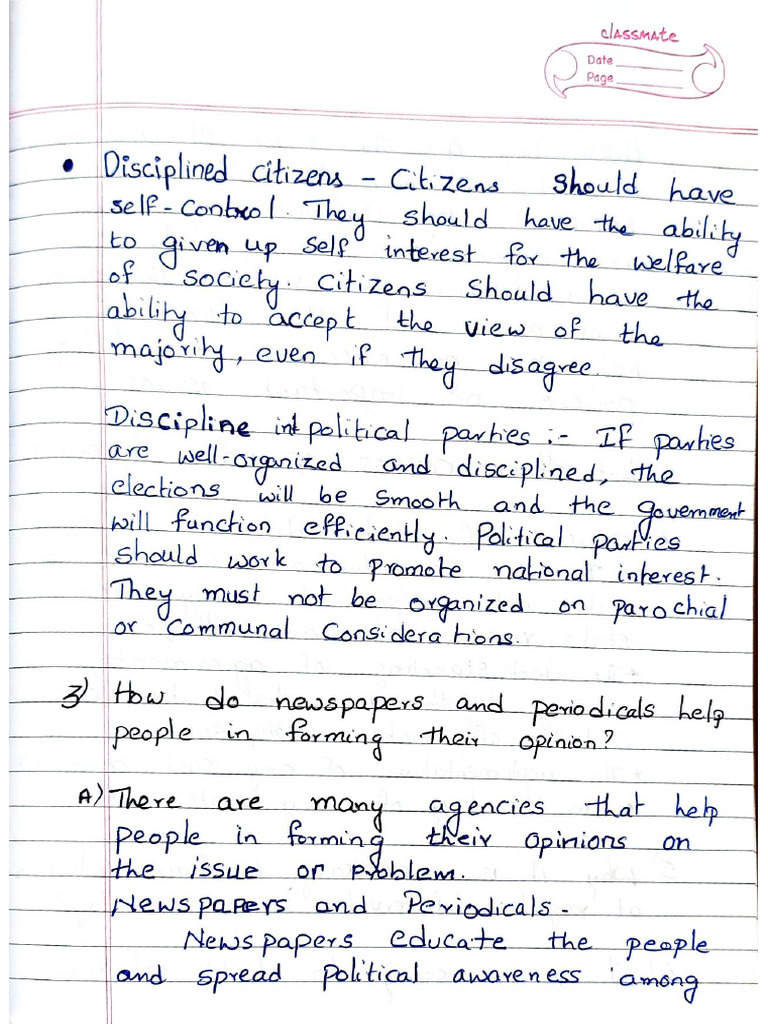 classmate
Date
Page
• Disciplined citizens - Citizens should have
self-control. They should have the ability
to given up self interest for the welfare
of society. Citizens should have the
ability to accept the view of the
majority, even if they disagree.
Discipline int political parties :- If parties
are well-organized and disciplined, the
elections will be smooth and the government
will function efficiently. Political parties
should work to promote national interest.
They must not be organized on parochial
or communal considerations.
3) How do newspapers and periodicals help
people in forming their opinion?
A) There are many agencies that help
people in forming their opinions on
the issue or problem.
Newspapers and Periodicals -
Newspapers educate the people
and spread political awareness among